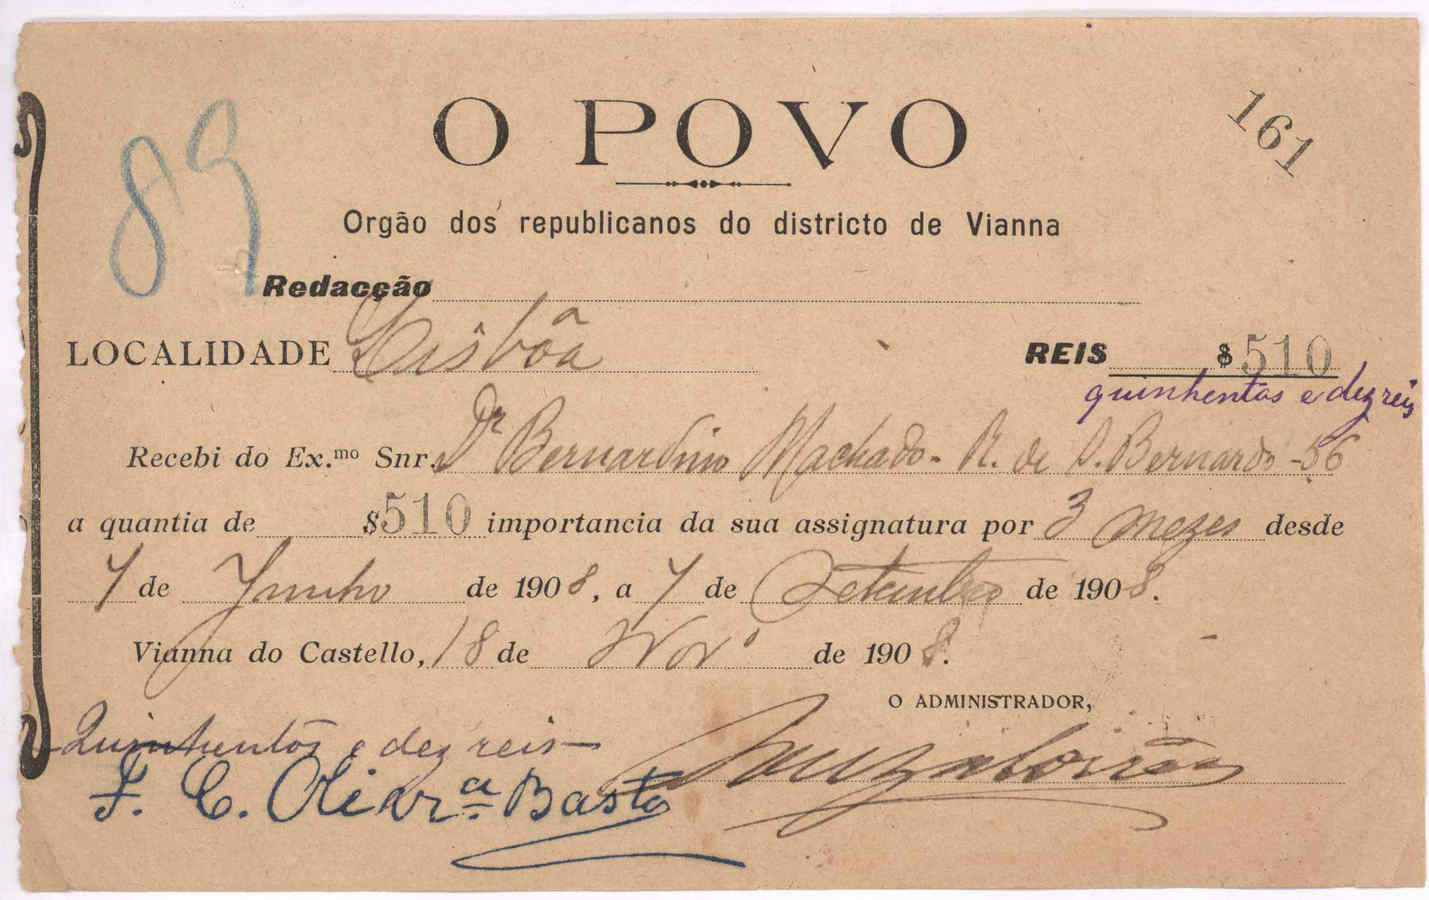 O POVO
161
89
Orgão dos republicanos do districto de Vianna
Redacção
LOCALIDADE Lisbôa REIS $510
quinhentos e dez reis
Recebi do Ex.mo Snr. Dr Bernardino Machado - R. de S. Bernardo - 56
a quantia de $510 importancia da sua assignatura por 3 mezes desde
7 de Junho de 1908, a 7 de Setembro de 1908.
Vianna do Castello, 18 de Nov. de 1908.
O ADMINISTRADOR,
Quinhentos e dez reis
F. C. Olivra Basto